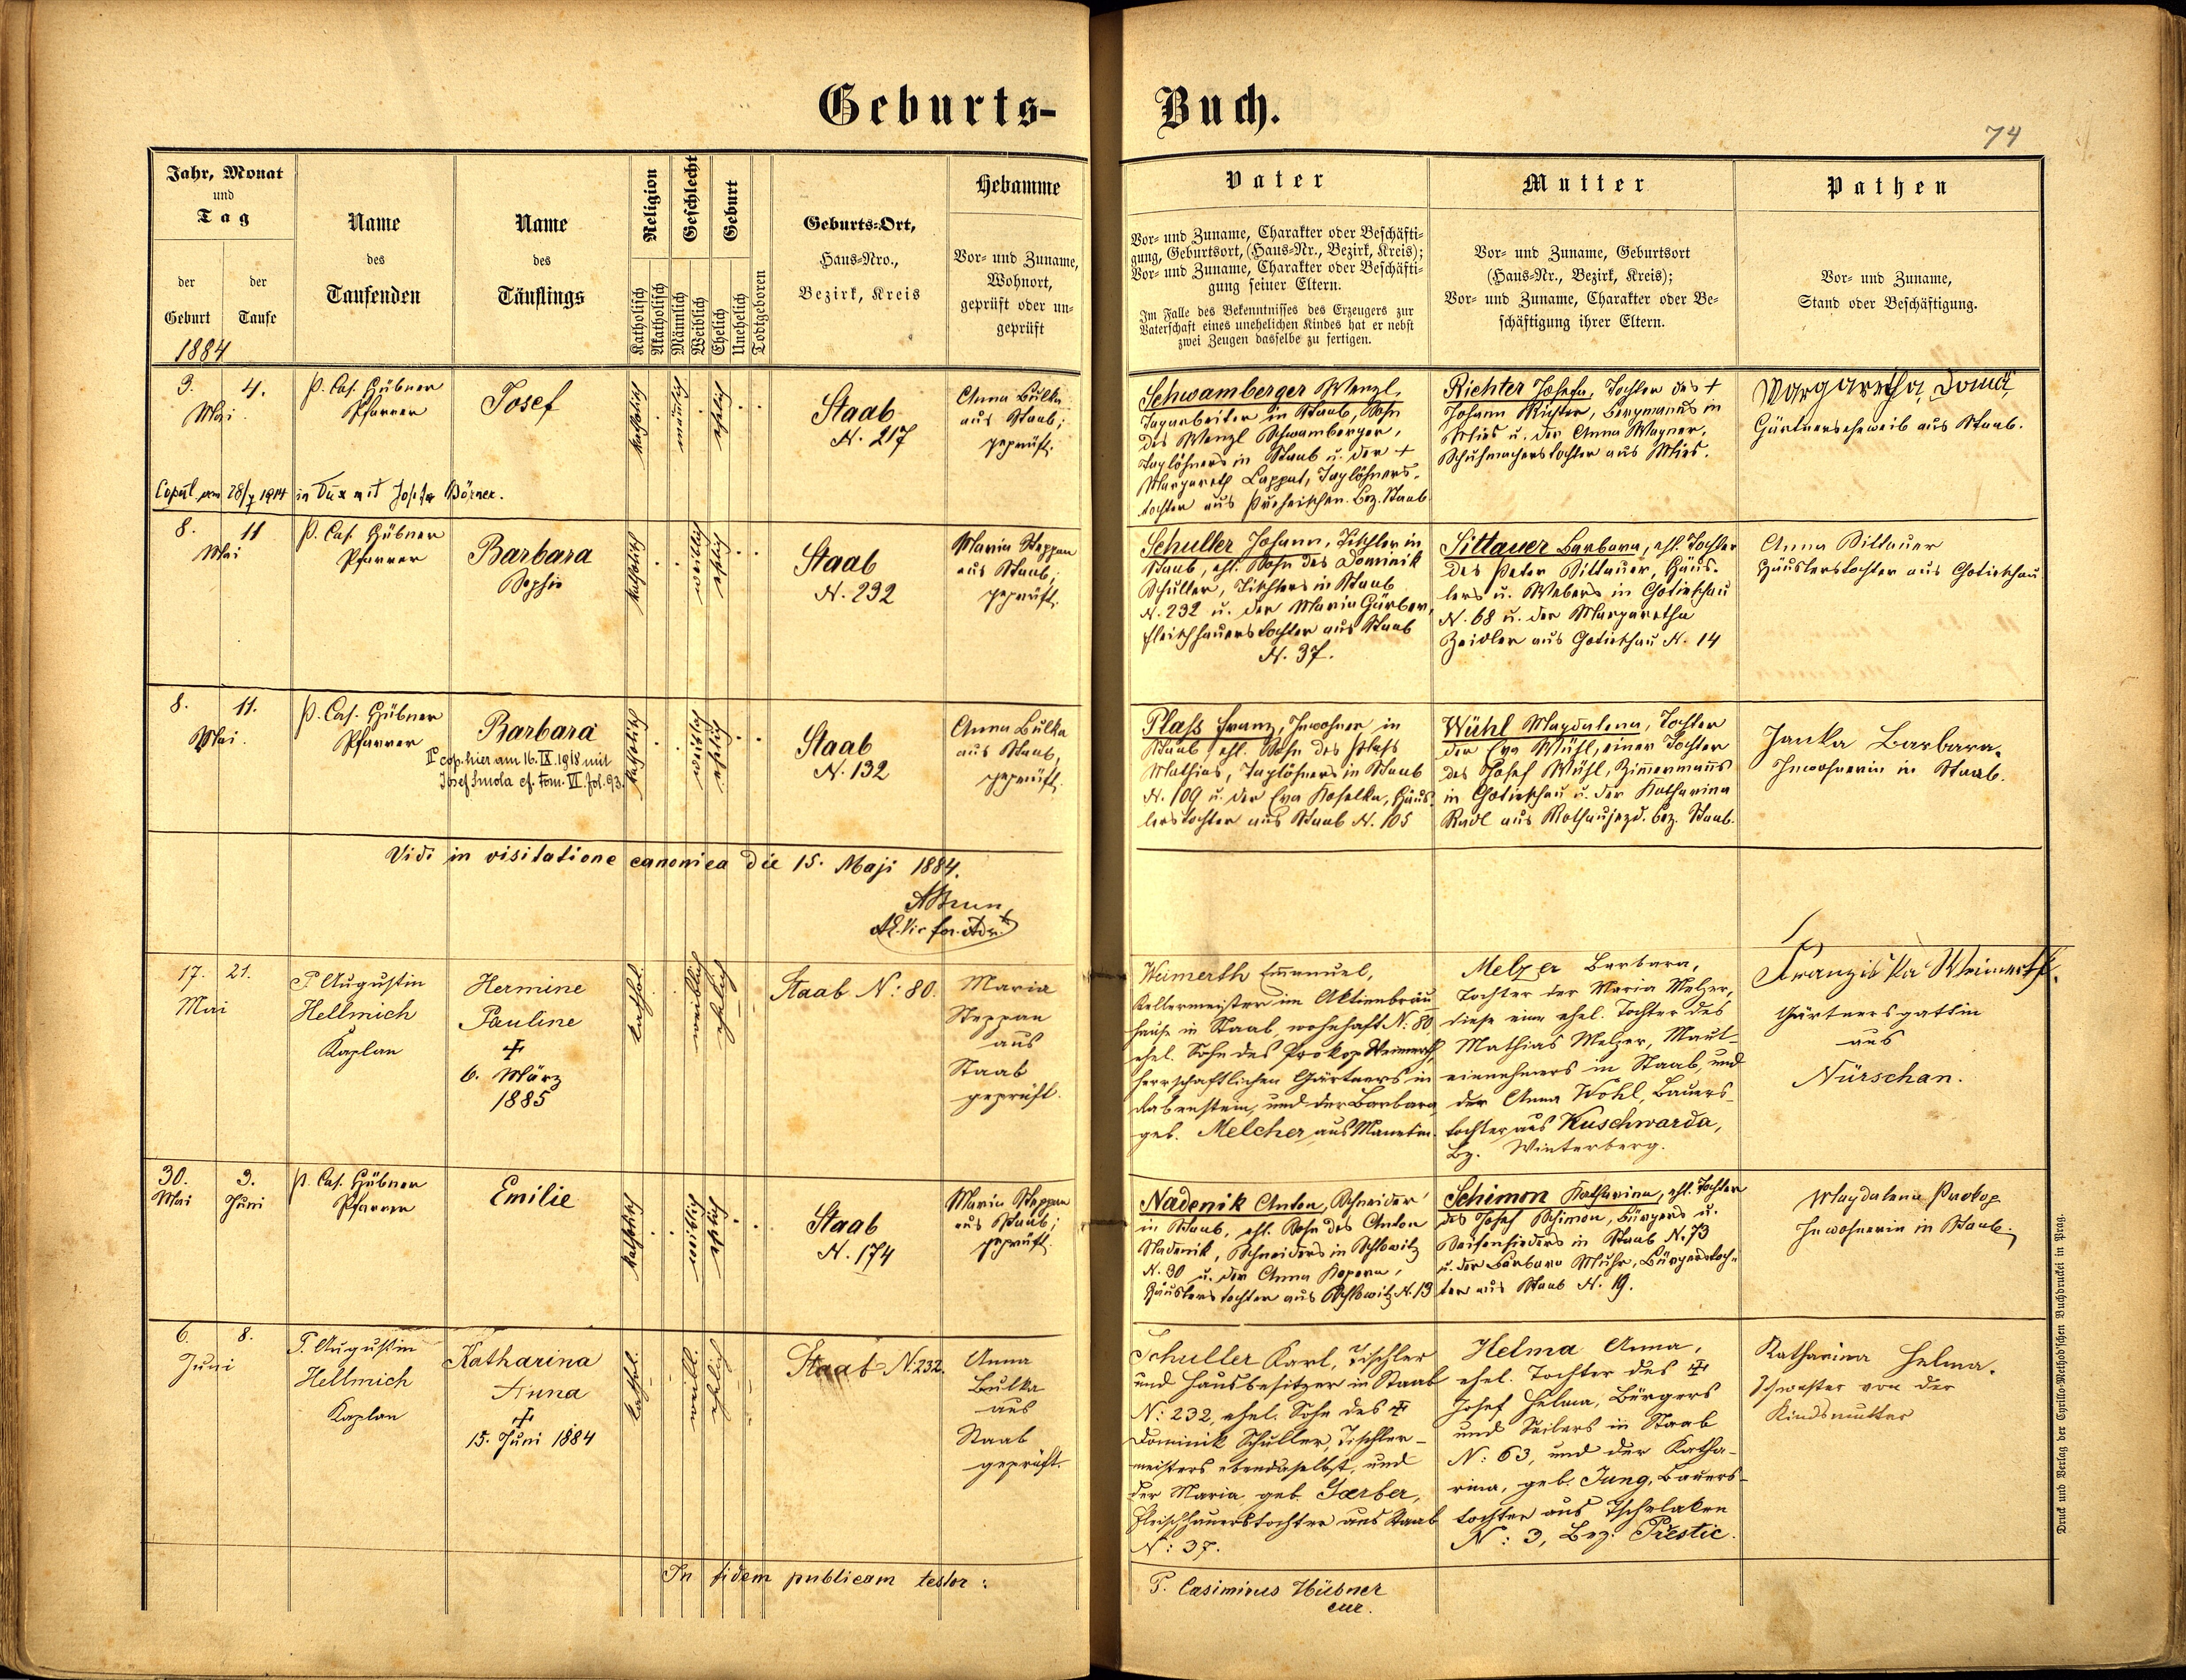 Geburts-
Buch.
74
Jahr, Monat
und
Tag
der
Geburt
der
Taufe
1884
Name
des
Taufenden
Name
des
Täuflings
Religion
Katholisch
Akatholisch
Geschlecht
Männlich
Weiblich
Geburt
Ehelich
Unehelich
Todtgeboren
Geburts-Ort,
Haus-Nro.,
Bezirk, Kreis
Hebamme
Vor- und Zuname,
Wohnort,
geprüft oder un-
geprüft
Vater
Vor- und Zuname, Charakter oder Beschäfti-
gung, Geburtsort, (Haus-Nr., Bezirk, Kreis);
Vor- und Zuname, Charakter oder Beschäfti-
gung seiner Eltern.
Im Falle des Bekenntnisses des Erzeugers zur
Vaterschaft eines unehelichen Kindes hat er nebst
zwei Zeugen dasselbe zu fertigen.
Mutter
Vor- und Zuname, Geburtsort
(Haus-Nr., Bezirk, Kreis);
Vor- und Zuname, Charakter oder Be-
schäftigung ihrer Eltern.
Pathen
Vor- und Zuname,
Stand oder Beschäftigung.
3. 4.
Mai
P. Cas. Hübner
Pfarrer
Josef
katholisch
männlich
ehelich
Staab
N. 217
Anna Bulka
aus Staab;
geprüft.
Schwamberger Wenzl,
Tagarbeiter in Staab, Sohn
des Wenzl Schwamberger,
Taglöhners in Staab u. der +
Margareth Lappat, Taglöhners-
tochter aus Bez. Staab
Richter Josefa, Tochter des +
Johann Richter, Bergmanns in
Mies u. der Anna Wagner,
Schuhmacherstochter aus Mies.
Margaretha
Gärtnerseheweib aus Staab.
Copul. am 28/7 1914 in Dux mit Josefa Börner.
8. 11
Mai
P. Cas. Hübner
Pfarrer
Barbara
Sophie
katholisch
weiblich
ehelich
Staab
N. 232
Maria Steppan
aus Staab,
geprüft.
Schuller Johann, Tischler in
Staab, ehl. Sohn des Dominik
Schuller, Tischlers in Staab
N. 232 u. der Maria Gärber,
Fleischhauerstochter aus Staab
N. 37.
Sittauer Barbara, ehl. Tochter
des Peter Sittauer, Häus-
lers u. Webers in Gotieschau
N. 68 u. der Margaretha
Zeidler aus Gotieschau N. 14
Anna Sittauer
Häuslerstochter aus Gotieschau
8. 11.
Mai.
P. Cas. Hübner
Pfarrer
Barbara
cop. hier am 16. IX. 1918 mit
Josef Smola cf. tom. VI. fol. 93.
katholisch
weiblich
ehelich
Staab
N. 132
Anna Bulka
aus Staab,
geprüft.
Plass Franz, Inwohner in
Staab, ehl. Sohn des Plass
Mathias, Taglöhners in Staab
N. 109 u. der Eva Koselka, Häus-
lerstochter aus Staab N. 105
Wühl Magdalena, Tochter
der Eva Wühl, einer Tochter
des Josef Wühl, Zimmermanns
in Gotieschau u. der Katharina
Radl aus Rothaujezd. bez. Staab.
Janka Barbara.
Inwohnerin in Staab.
Vidi in visitatione canonica die 15. Maji 1884.
17. 21.
Mai
P Augustin
Hellmich
Kaplan
Hermine
Pauline
✝
6. März
1885
kathol.
weiblich
ehelich
Staab N: 80.
Maria
Steppan
aus
Staab
geprüft.
Weimerth Emanuel,
Kellermeister im Aktienbräu
hause in Staab, wohnhaft N: 80
ehel. Sohn des Prokop Weimerth,
herrschaftlichen Gärtners in
Rabenstein, und der Barbara
geb. Melcher aus Manetin.
Melzer Barbara,
Tochter der Maria Melzer,
diese eine ehel. Tochter des
Mathias Melzer, Maut-
einnehmers in Staab, und
der Anna Wohl, Bauers-
tochter aus Kuschwarda,
Bz. Winterberg.
Franziska Weimerth.
Gärtnersgattin
aus
Nürschan.
30. 3.
Mai Juni
P. Cas. Hübner
Pfarrer
Emilie
katholisch
weiblich
ehelich
Staab
N. 174
Maria Steppan
aus Staab;
geprüft.
Nadenik Anton, Schneider
in Staab, ehl. Sohn des Anton
Nadenik, Schneiders in Schlowitz
N. 30 u. der Anna Kopera,
Häuslerstochter aus Schlowitz N. 13
Schimon Katharina, ehl. Tochter
des Josef Schimon, Bürgers u.
Seifensieders in Staab N. 73
u. der Barbara Muhr, Bürgerstoch-
ter aus Staab N. 19.
Magdalena Prokop
Inwohnerin in Staab.
6. 8.
Juni
P. Augustin
Hellmich
Kaplan
Katharina
Anna
✝
15. Juni 1884
kathol.
weibl.
ehelich
Staab N. 232.
Anna
Bulka
aus
Staab
geprüft.
Schuller Karl, Tischler
und Hausbesitzer in Staab
N: 232, ehel. Sohn des ✝
Dominik Schuller, Tischler-
meisters ebendaselbst, und
der Maria geb. Gaerber,
Fleischhauerstochter aus Staab
N: 37.
Helma Anna,
ehel. Tochter des ✝
Josef Helma, Bürgers
und Seilers in Staab
N: 63, und der Katha-
rina, geb. Jung, Bauers-
tochter aus Tschelaken
N: 3, Bez: Přestic.
Katharina Helma.
Schwester von der
Kindsmutter
In fidem publicam testor:
P. Casimirus Hübner
cur.
Druck und Verlag der Cyrillo-Method'schen Buchdruckei in Prag.